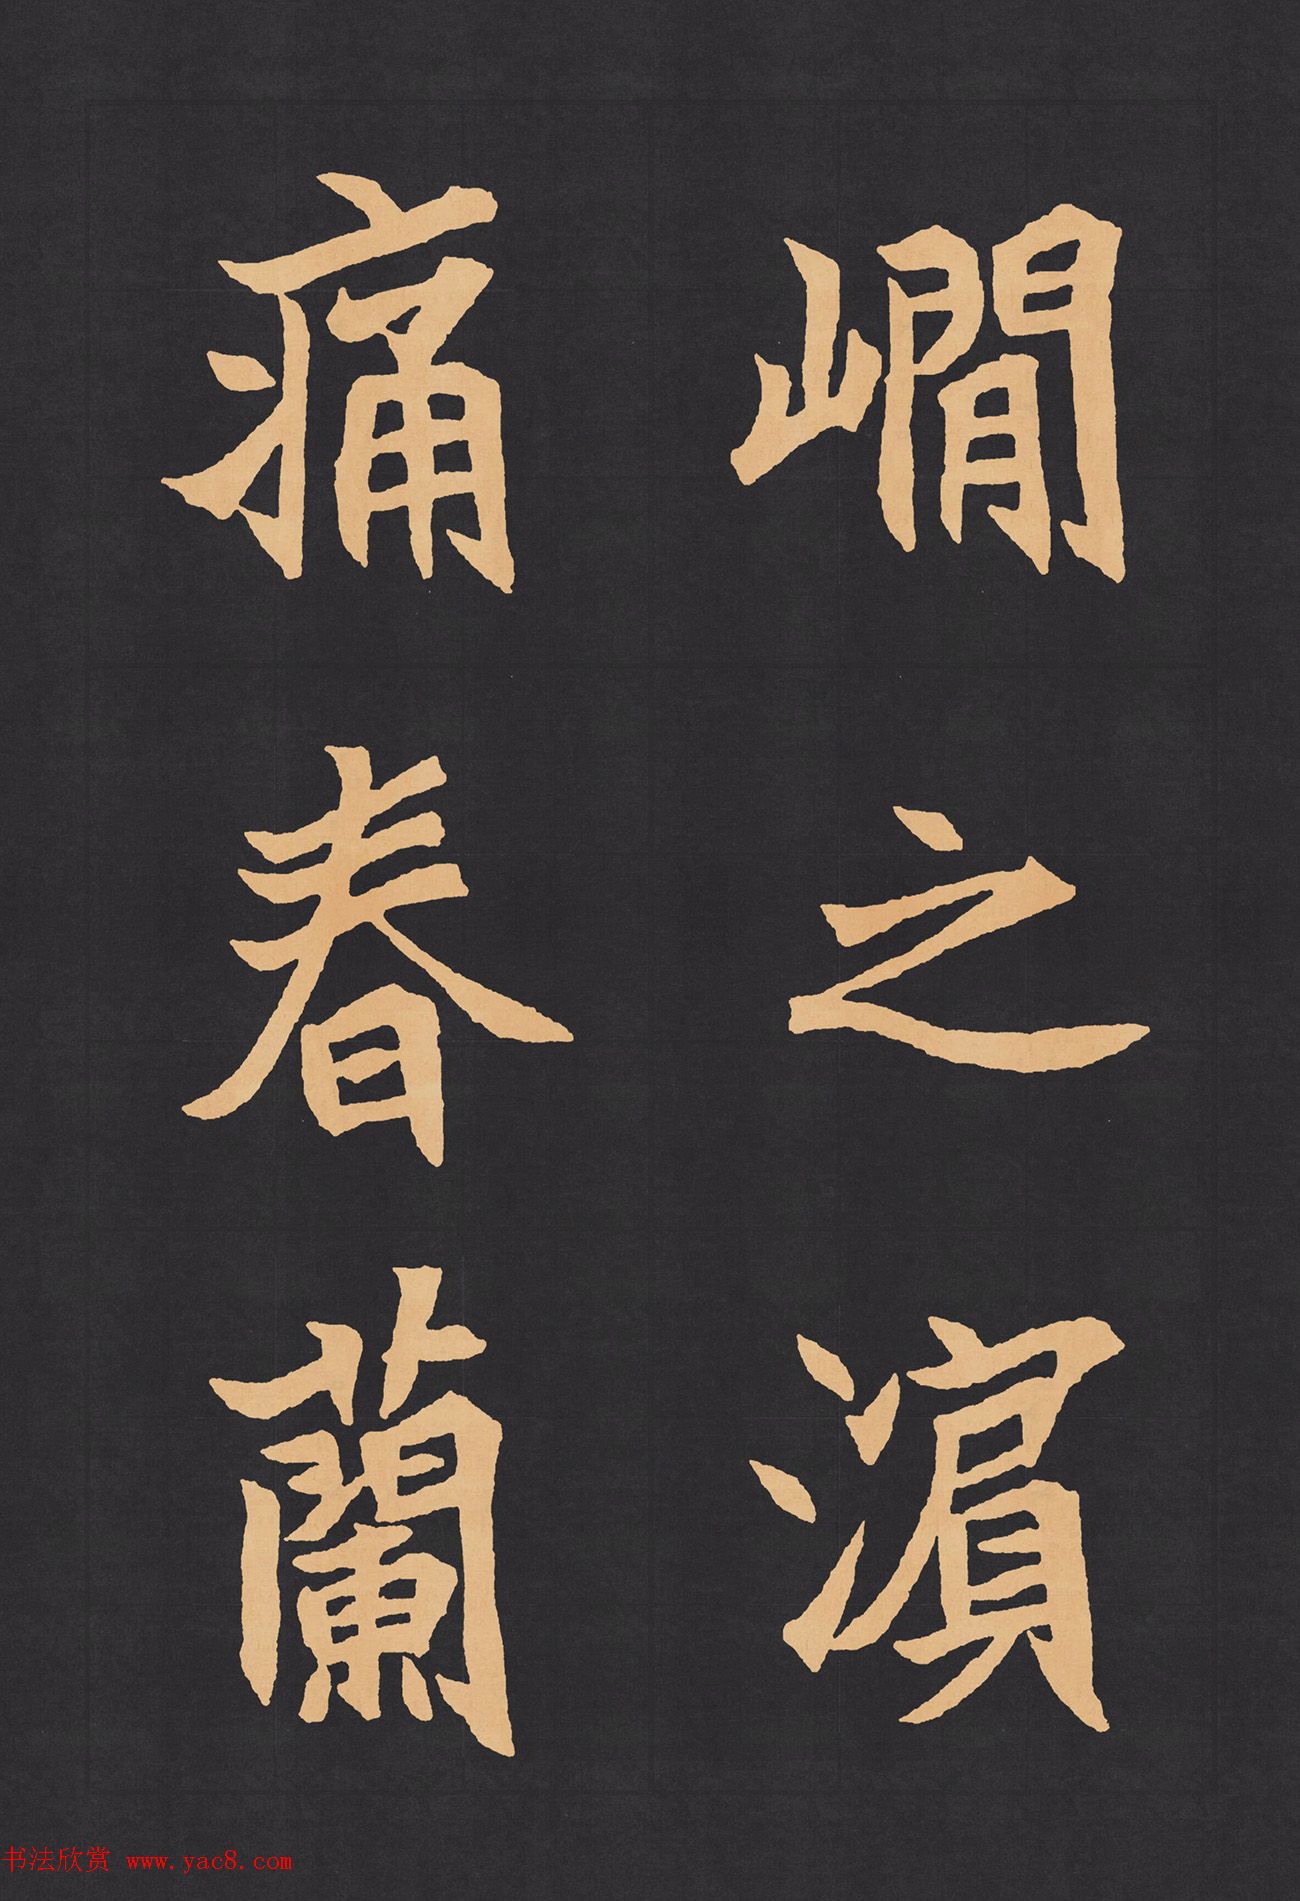 嶰之濵
痛春蘭
书法欣赏 www.yac8.com